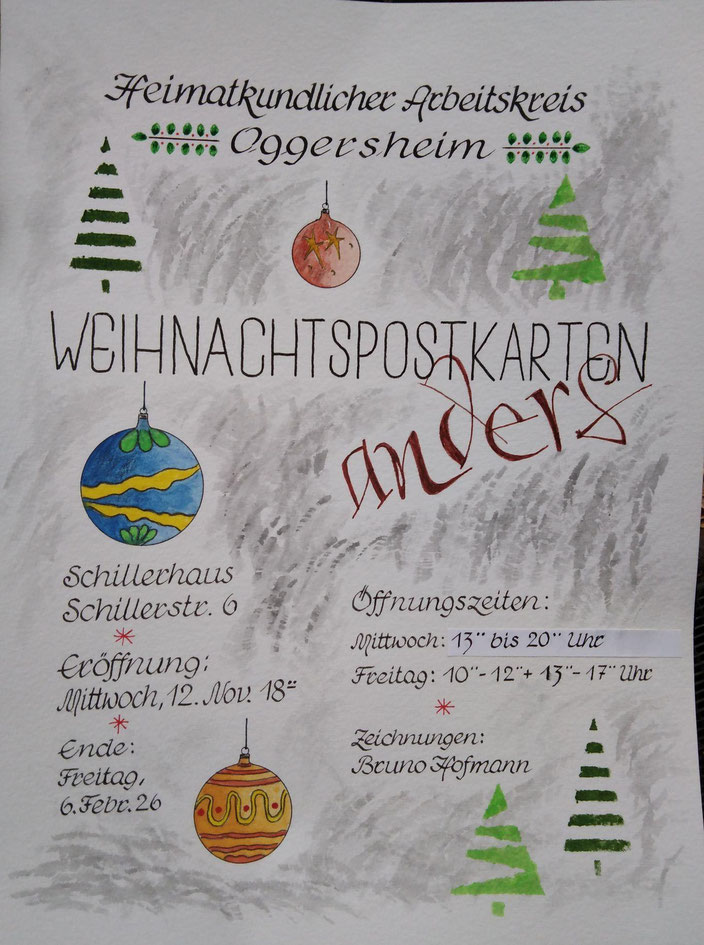 Heimatkundlicher Arbeitskreis
Oggersheim
WEIHNACHTSPOSTKARTEN
anders
Schillerhaus
Schillerstr. 6
Eröffnung:
Mittwoch, 12. Nov. 18⁰⁰
Ende:
Freitag,
6. Febr. 26
Öffnungszeiten:
Mittwoch: 13⁰⁰ bis 20⁰⁰ Uhr
Freitag: 10⁰⁰-12⁰⁰ + 13⁰⁰-17⁰⁰ Uhr
Zeichnungen:
Bruno Hofmann